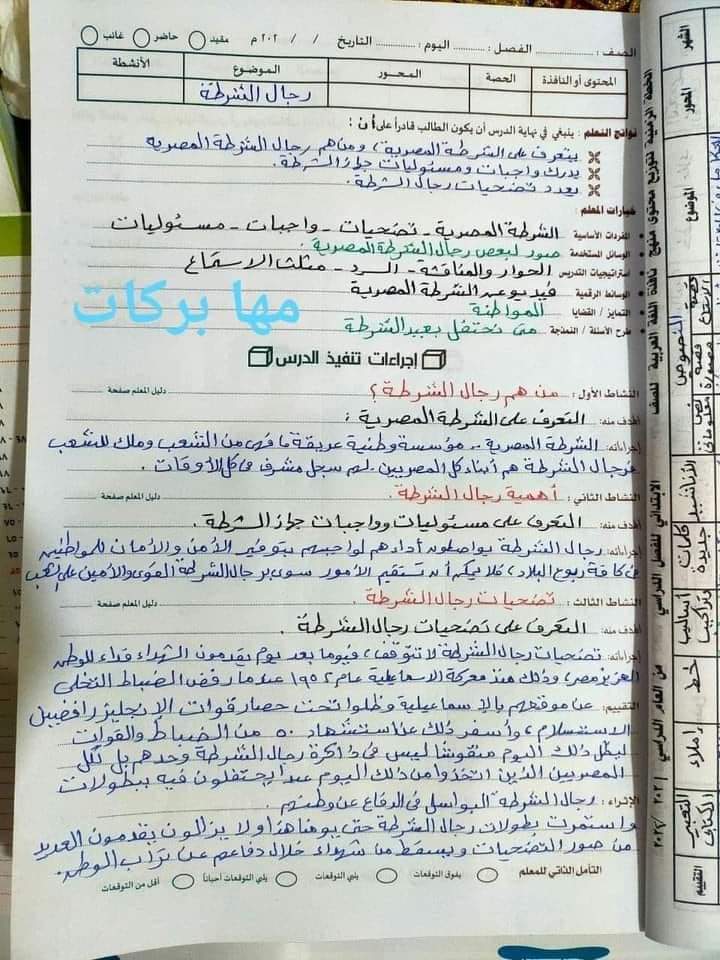 الصف : .......... الفصل : .......... اليوم : .......... التاريخ / / ٢٠٢ م مقيد حاضر غائب
المحتوى أو النافذة الحصة المحور الموضوع الأنشطة
رجال الشرطة
نواتج التعلم : ينبغي في نهاية الدرس أن يكون الطالب قادراً على أن :
يتعرف على الشرطة المصرية، ومن هم رجال الشرطة المصرية
يدرك واجبات ومسئوليات جهاز الشرطة.
يعدد تضحيات رجال الشرطة.
خيارات المعلم :
المفردات الأساسية الشرطة المصرية - تضحيات - واجبات - مسئوليات
الوسائل المستخدمة صور لبعض رجال الشرطة المصرية.
استراتيجيات التدريس الحوار والمناقشة - السرد - مثلث الاستماع
الوسائط الرقمية فيديو عن الشرطة المصرية
التمايز / القضايا المواطنة
طرح الأسئلة / النمذجة متى نحتفل بعيد الشرطة
مها بركات
إجراءات تنفيذ الدرس
النشاط الأول : من هم رجال الشرطة؟ دليل المعلم صفحة
الهدف منه: التعرف على الشرطة المصرية :
إجراءاته: الشرطة المصرية .. مؤسسة وطنية عريقة فهى من الشعب وملك للشعب
فرجال الشرطة هم أبناء كل المصريين. لهم سجل مشرف فى كل الأوقات.
النشاط الثاني : أهمية رجال الشرطة. دليل المعلم صفحة
الهدف منه: التعرف على مسئوليات وواجبات جهاز الشرطة.
إجراءاته: رجال الشرطة يواصلون أداءهم لواجبهم بتوفير الأمن والأمان للمواطنين
فى كافة ربوع البلاد، فلا يمكن أن تستقيم الأمور سوى برجال الشرطة القوى والأمين على الشعب
النشاط الثالث : تضحيات رجال الشرطة. دليل المعلم صفحة
الهدف منه: التعرف على تضحيات رجال الشرطة.
إجراءاته: تضحيات رجال الشرطة لا تتوقف، فيوما بعد يوم يقدمون الشهداء فداء للوطن
العزيز مصر، وذلك منذ معركة الاسماعيلية عام ١٩٥٢ عندما رفض الضباط التخلى
التقييم: عن موقعهم بالإسماعيلية وظلوا تحت حصار قوات الإنجليز رافضين
الاستسلام، وأسفر ذلك عن استشهاد ٥٠ من الضباط والقوات
ليظل ذلك اليوم منقوشا ليس فى ذاكرة رجال الشرطة وحدهم بل كل
المصريين الذين اتخذوا من ذلك اليوم عيدا يحتفلون فيه ببطولات
الإثراء: رجال الشرطة البواسل فى الدفاع عن وطنهم.
واستمرت بطولات رجال الشرطة حتى يومنا هذا ولا يزالون يقدمون العديد
من صور التضحيات ويسقط من شهداء خلال دفاعهم عن تراب الوطن.
التأمل الذاتي للمعلم يفوق التوقعات يلبي التوقعات يلبي التوقعات أحياناً أقل من التوقعات
الخطة الزمنية لتوزيع محتوى منهج نافذة اللغة العربية للصف الابتدائي للفصل الدراسي من العام الدراسي ٢٠٢١ / ٢٠٢٢
الشهر
المحور
الموضوع
النصوص
الأناشيد
كلمات جديدة
أساليب وتراكيب
خط
إملاء
التعبير الكتابى
التقييم